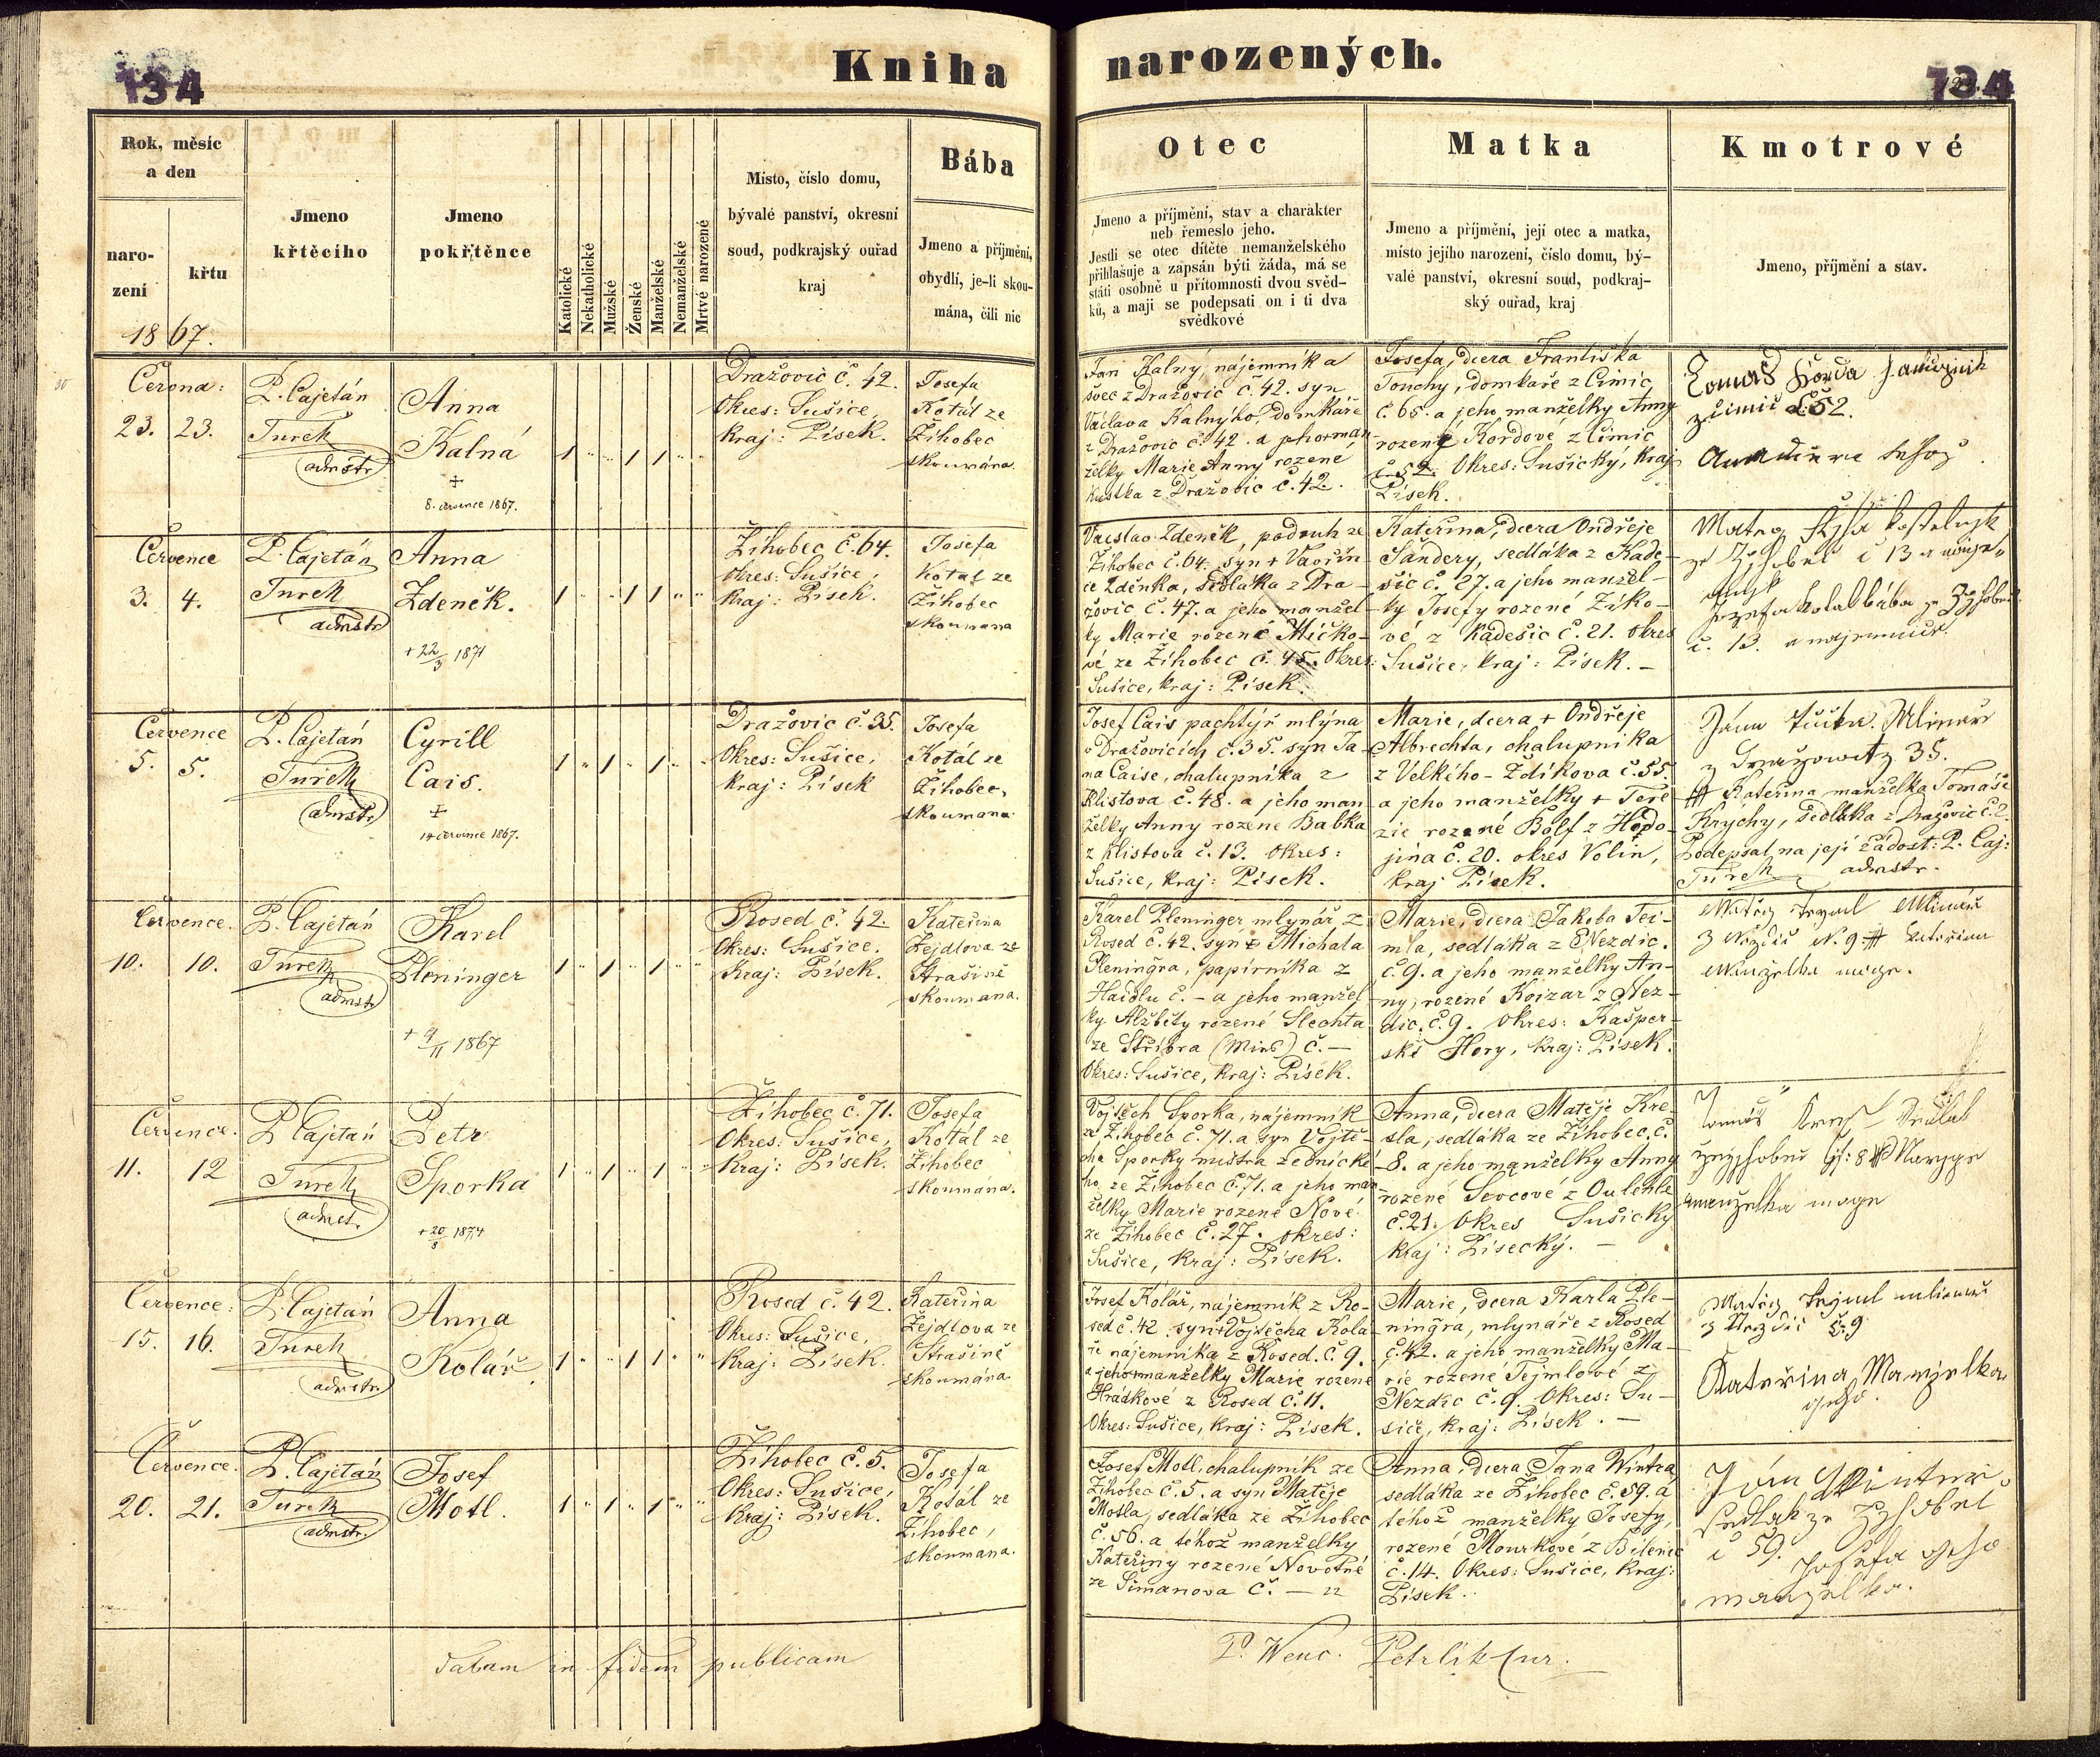 134
Kniha
narozených.
134
Rok, měsíc
a den
naro-
zení
křtu
1867.
Jmeno
křtěcího
Jmeno
pokřtěnce
Katolické
Nekatholické
Mužské
Ženské
Manželské
Nemanželské
Mrtvé narozené
Místo, číslo domu,
bývalé panství, okresní
soud, podkrajský ouřad
kraj
Bába
Jmeno a příjmění,
obydlí, je-li skou-
mána, čili nic
Otec
Jmeno a příjmění, stav a charakter
neb řemeslo jeho.
Jestli se otec dítěte nemanželského
přihlašuje a zapsán býti žáda, má se
státi osobně u přítomnosti dvou svěd-
ků, a mají se podepsati on i ti dva
svědkové
Matka
Jmeno a příjmění, její otec a matka,
místo jejího narození, číslo domu, bý-
valé panství, okresní soud, podkraj-
ský ouřad, kraj
Kmotrové
Jmeno, příjmění a stav.
Června:
23. 23.
P. Cajetán
Turek
admstr
Anna
Kalná
+
8. července 1867.
Dražovic č. 42.
Okres: Sušice,
Kraj: Písek.
Josefa
Kotál ze
Žihobec
skoumána.
Jan Kalný, nájemník a
švec z Dražovic č. 42. syn
Václava Kalnýho, domkáře
z Dražovic č. 42. a jeho man-
želky Marie Anny rozené
Kustka z Dražovic č. 42.
Josefa, dcera Františka
Touchy, domkaře z Čimic,
č. 65. a jeho manželky Anny
rozené Kordové z Čimic
č. 52. Okres: Sušický, Kraj
Písek.
Tomaš Korda
z Čimic č. 52.
Července
3. 4.
P. Cajetán
Turek
admstr
Anna
Zdeněk.
+ 22/3 1871
Žihobec č. 64.
Okres: Sušice,
Kraj: Písek.
Josefa
Kotal ze
Žihobec
skoumana
Vácslav Zdeněk, podruh ze
Žihobec č. 64. syn + Vavřin-
ce Zděnka, sedláka z Dra-
žovic č. 47. a jeho manžel-
ky Marie rozené Mičko-
vé ze Žihobec č. 45. Okres:
Sušice, kraj: Písek.
Kateřina, dcera Ondřeje
Šandery, sedláka z Kade-
šic č. 27. a jeho manžel-
ky Josefy rozené Žíko-
vé z Kadešic č. 21. okres
Sušice, kraj: Písek. –
č 13
Josefa Kotal bába ze
č. 13.
Července
5. 5.
P. Cajetán
Turek
admstr
Cyrill
Cais.
+
14 července 1867.
Dražovic č. 35.
Okres: Sušice,
Kraj: Písek
Josefa
Kotál ze
Žihobec,
skoumana.
Josef Cais pachtýř mlýna
v Dražovicích č. 35. syn Ja-
na Caise, chalupníka z
Klistova č. 48. a jeho man-
želky Anny rozené Babka
z Klistova č. 13. Okres:
Sušice, kraj: Písek.
Marie, dcera + Ondřeje
Albrechta, chalupnika
z Velkého-Zdíkova č. 55.
a jeho manželky + Tere-
zie rozené Bolf z Hodo-
jína č. 20. okres Volin,
kraj Písek.
35.
Kateřina manželka Tomáše
Krýchy, sedláka z Dražovic č. 2.
Podepsal na její žádost: P. Caj:
Turek admstr.
Července.
10. 10.
P. Cajetán
Turek
admstr
Karel
Pleninger
+ 9/11 1867
Rosed č. 42.
Okres: Sušice.
Kraj: Písek.
Kateřina
Zejdlova ze
Strašině
skoumana.
Karel Pleninger mlynář z
Rosed č. 42. syn + Michala
Pleningra, papírníka z
Haidlu č. – a jeho manžel-
ky Alžběty rozené Slechta
ze Stříbra (Mies) č. –
Okres: Sušice, Kraj: Písek.
Marie, dcera Jakoba Tej-
mla, sedláka z Nezdic.
č. 9. a jeho manželky An-
ny, rozené Koizar z Nez-
dic. č. 9. Okres: Kašper-
ské Hory, kraj: Písek.
Července.
11. 12
P. Cajetán
Turek
admst.
Petr
Sporka
+ 20/8 1874
Žihobec č. 71.
Okres: Sušice,
Kraj: Písek.
Josefa
Kotál ze
Žihobec
skoumána.
Vojtěch Sporka, nájemník
ze Žihobec č. 71. a syn Vojtě-
cha Sporky mistra zednické-
ho, ze Žihobec č. 71. a jeho man-
želky Marie rozené Nové
ze Žihobec č. 27. okres:
Sušice, kraj: Písek.
Anna, dcera Matěje Kre-
sla, sedláka ze Žihobec, č.
8. a jeho manželky Anny
rozené Sevcové z Oulehle
č. 21. Okres Sušický
kraj: Písecký. –
manželka
Července:
15. 16.
P. Cajetán
Turek
admstr
Anna
Kolář.
Rosed č. 42.
Okres: Sušice,
Kraj: Písek.
Kateřina
Zejdlova ze
Strašině
skoumána.
Josef Kolář, nájemník z Ro-
sed č. 42. syn + Vojtěcha Kola-
ře najemnika z Rosed. č. 9.
a jeho + manželky Marie rozené
Hrádkové z Rosed č. 11.
Okres: Sušice, kraj: Písek.
Marie, dcera Karla Ple-
ningra, mlynáře z Rosed
č. 42. a jeho manželky Ma-
rie rozené Tejmlové z
Nezdic č. 9. Okres: Su-
šice, kraj: Písek. –
č. 9
Kateřina Manzelka
Července.
20. 21.
P. Cajetán
Turek
admstr.
Josef
Motl.
Žihobec č. 5.
Okres: Sušice,
Kraj: Písek.
Josefa
Kotál ze
Žihobec,
skoumana.
Josef Motl, chalupník ze
Žihobec č. 5. a syn Matěje
Motla, sedláka ze Žihobec
č. 56. a téhož manželky
Kateřiny rozené Novotné
ze Šimanova č. –
Anna, dcera Jana Wintra
sedláka ze Žihobec č. 59. a
téhož manželky Josefy,
rozené Mourkové z Bilenic
č. 14. Okres: Sušice, kraj:
Písek.
č 59.
Datum in fidem publicam
P. Wenc. Petrlik cur.